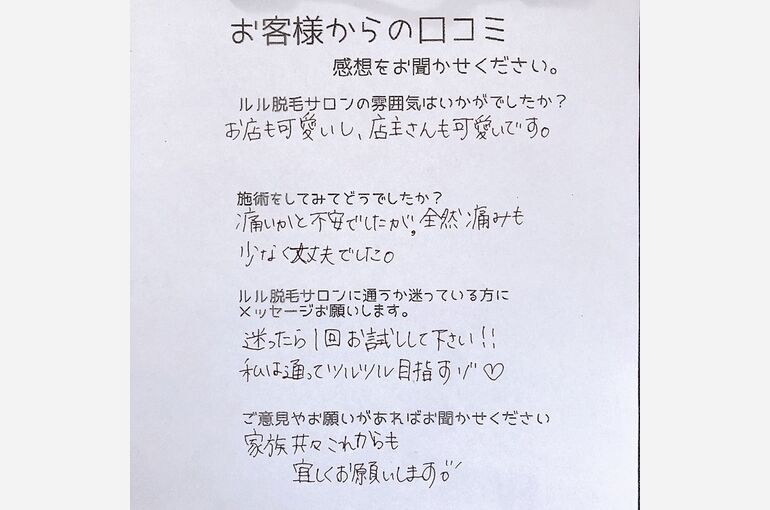 お客様からの口コミ
感想をお聞かせください。
ルル脱毛サロンの雰囲気はいかがでしたか？
お店も可愛いし、店主さんも可愛いです。
施術をしてみてどうでしたか？
痛いかと不安でしたが、全然痛みも
少なく丈夫でした。
ルル脱毛サロンに通うか迷っている方に
メッセージお願いします。
迷ったら1回お試しして下さい!!
私は通ってツルツル目指すゾ♡
ご意見やお願いがあればお聞かせください
家族共々これからも
宜しくお願いします。